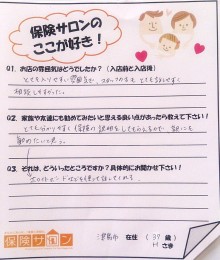 保険サロンの
ここが好き!
Q1. お店の雰囲気はどうでしたか?(入店前と入店後)
とても入りやすい雰囲気で、スタッフの方も とても話しやすく
相談しやすかった。
Q2. 家族や友達にも勧めてみたいと思える良い点があったら教えて下さい!
とても分かりやすく保険の説明をしてもらえるので、
勧めたいと思う。
Q3. それは、どういったところですか?具体的にお聞かせ下さい!
ホワイトボードなどを使って話してくれる。
保険サロン
在住 (37 歳)
H さま